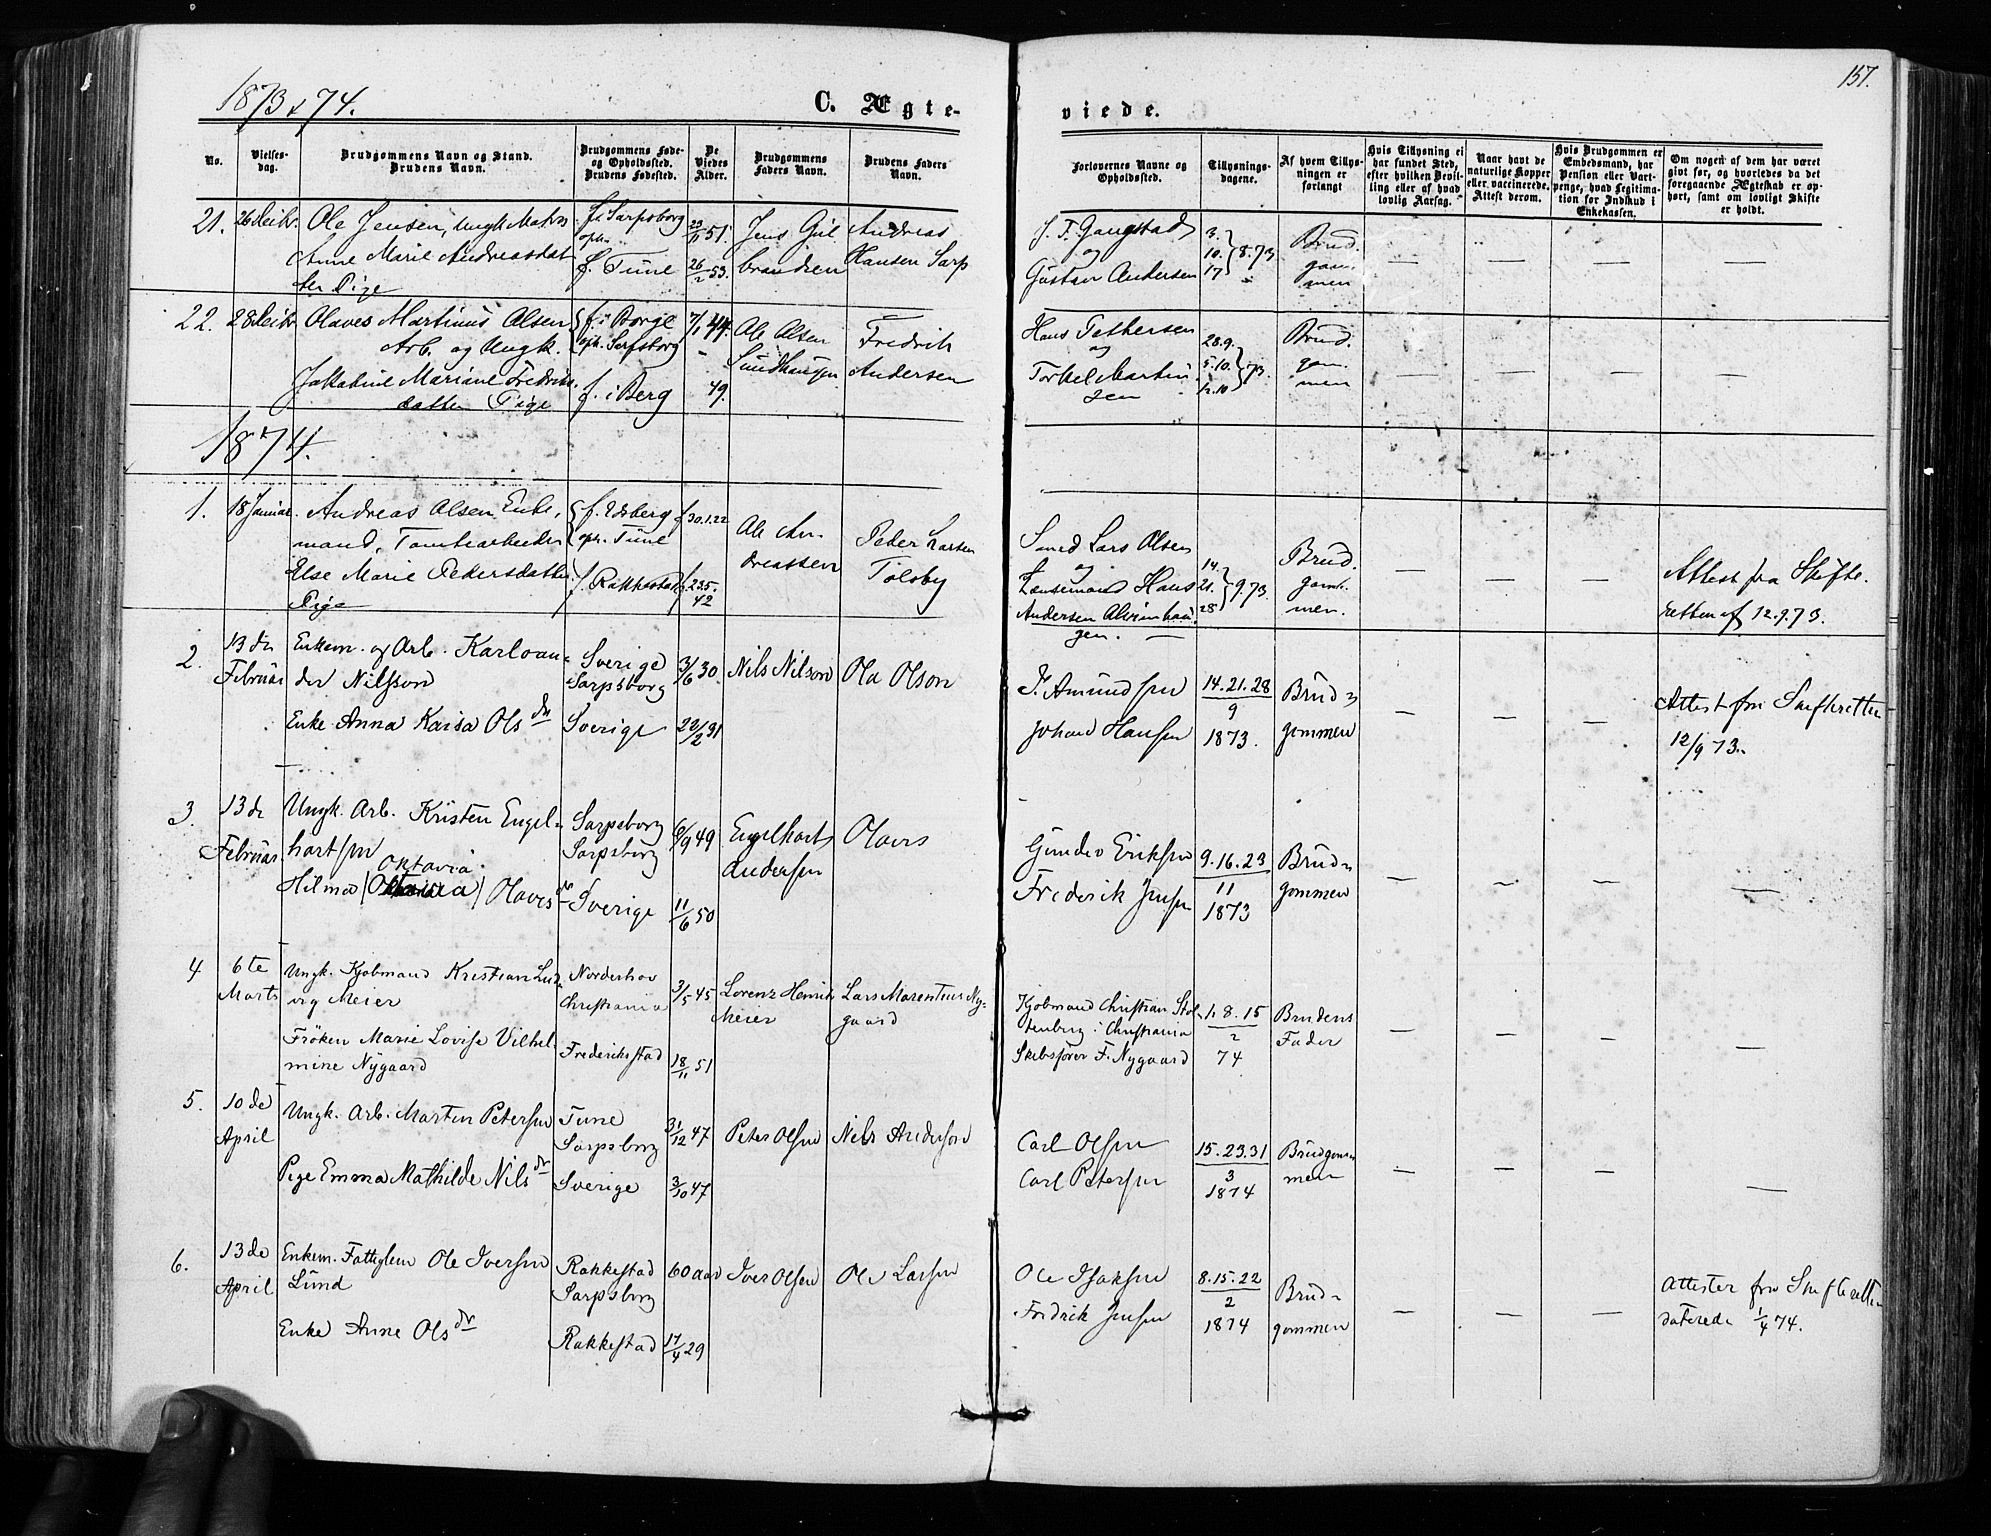 1873 & 74.
C. Ægte-
viede.
157.
No.
Vielses-
dag.
Brudgommens Navn og Stand.
Brudens Navn.
Brudgommens Føde-
og Opholdssted.
Brudens Fødested.
De
Viedes
Alder.
Brudgommens
Faders Navn.
Brudens Faders
Navn.
Forlovernes Navne og
Opholdssted.
Tillysnings-
dagene.
Af hvem Tillys-
ningen er
forlangt
Hvis Tillysning ei
har fundet Sted,
efter hvilken Bevil-
ling eller af hvad
lovlig Aarsag.
Naar havt de
naturlige Kopper
eller vaccinerede.
Attest derom.
Hvis Brudgommen er
Embedsmand, har
Pension eller Vart-
penge, hvad Legitima-
tion for Indskud i
Enkekassen.
Om nogen af dem har været
givt før, og hvorledes da det
foregaaende Ægteskab er op-
hørt, samt om lovligt Skifte
er holdt.
21.
Ole Jensen, Ungk.
Anne Marie Andreasdat
ter Pige
f. Sarpsborg
oph. "
f. Tune
23/11 51.
26/2 53.
Jens Gul
brandsen
Andreas
Hansen Sarp
og
Gustav Andersen
3.
10. 8.73
17
Brud.
gom.
men
— — — —
22.
Olaves Martinus Olsen
Arb. og Ungk.
Mariane Fredriks.
datter Pige
f. i Borge
oph. Sarpsborg
f. i Berg
7/1 44.
49.
Ole Olsen
Sundhaugen
Fredrik
Andersen
Hans Pettersen
og
Torkel Martin
sen
28.9.
5.10. 73.
12.10
Brud.
gom.
men
— — — —
1874.
1.
18 Januar.
Andreas Olsen Enke.
mand, Tomtearbeider
Else Marie Pedersdatter
Pige
f. Edsberg
oph. Tune
f. Rakkestad
f 30.1.22
f. 23.5.
42
Ole An-
dreassen
Peder Larsen
Tolsby
Smed Lars Olsen
og
Lænsmand Hans
Andersen Alvimhau.
gen. —
14.
21. 9.73.
28
Brud.
gom.
men.
— — —
Attest fra Skifte.
retten af 12.9.73.
2.
13 de
Februar
Enkem. og Arb. Karl
der Nilsson
Enke Anna Kaisa Ols dr
Sverige
Sarpsborg
Sverige
3/6 30.
22/2 31
Nils Nilson
Ola Olson
J. Amundsen
Johan Hansen
14. 21. 28
9
1873.
Brud-
gommen
— — —
Attest fra Skifteretten
12/9 73.
3.
13 de
Februar.
Ungk. Arb. Kristen Engel-
hartsen
Oktavia
Hilma Olaves dr
Sarpsborg
Sarpsborg
Sverige
6/9 49
11/6 50
Engelhart
Andersen
Olaves
Gunder Eriksen
Frederik Jensen
9. 16. 23
11
1873
Brud-
gommen
— — — —
4
6te
Marts
Ungk. Kjøbmand Kristian Lud-
vig Meier
Frøken Marie Lovise Vilhel
mine Nygaard
Norderhov
Christiania
Frederikstad
3/5 45
18/11 51
Lorenz Henrik
Meier
Lars Marentius Ny-
gaard
Kjøbmand Christian Stol-
tenberg i Christiania
Skibsfører F. Nygaard
1. 8. 15
2
74
Brudens
Fader
— — — —
5.
10 de
April
Ungk. Arb. Martin Petersen
Pige Emma Mathilde Nils dr
Tune
Sarpsborg
Sverige
31/12 47
3/10 47
Peter Olsen
Nils Anderson
Carl Olsen
Carl Petersen
15. 23. 31
3
1874
Brudgom-
men
— — — —
6.
13 de
April
Enkem. Fattiglem Ole Iversen
Lund
Enke Anne Ols dr
Rakkestad
Sarpsborg
Rakkestad
60 aar
17/4 29
Iver Olsen
Ole Larsen
Ole Isaksen
Fridrik Jensen
8. 15. 22
2
1874
Brud-
gommen
— — —
Attester fra Skifteretten
daterede 1/4 74.